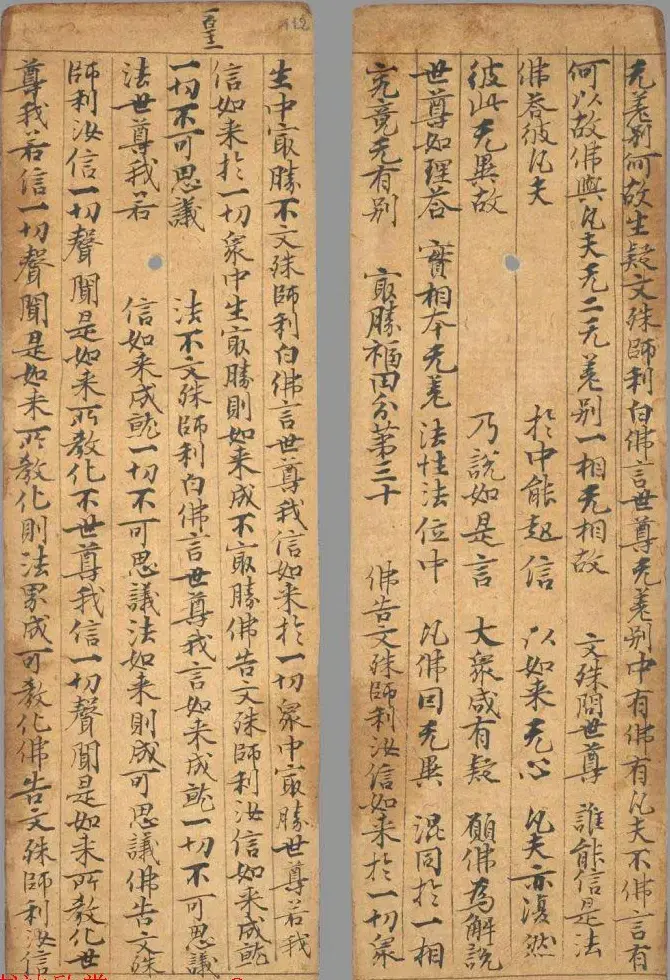 无差别何故生疑文殊師利白佛言世尊无差别中有佛有凡夫不佛言有
何以故佛與凡夫无二无差别一相无相故 文殊問世尊 誰能信是法
佛荅彼凡夫 於中能起信 以如来无心 凡夫亦復然
彼此无異故 乃說如是言 大衆咸有疑 願佛為解說
世尊如理荅 實相本无差 法性法位中 凡佛因无異 混同於一相
究竟无有别 㝡勝福田分苐三十 佛告文殊師利汝信如来於一切衆
生中㝡勝不文殊師利白佛言世尊我信如来於一切衆中㝡勝世尊若我
信如来於一切衆中生㝡勝則如来成不㝡勝佛告文殊師利汝信如来成就
一切不可思議法不文殊師利白佛言世尊我言如来成就一切不可思議
法世尊我若信如来成就一切不可思議法如来則成可思議佛告文殊
師利汝信一切聲聞是如来所教化不世尊我信一切聲聞是如来所教化世
尊我若信一切聲聞是如来所教化則法界成可教化佛告文殊師利汝信